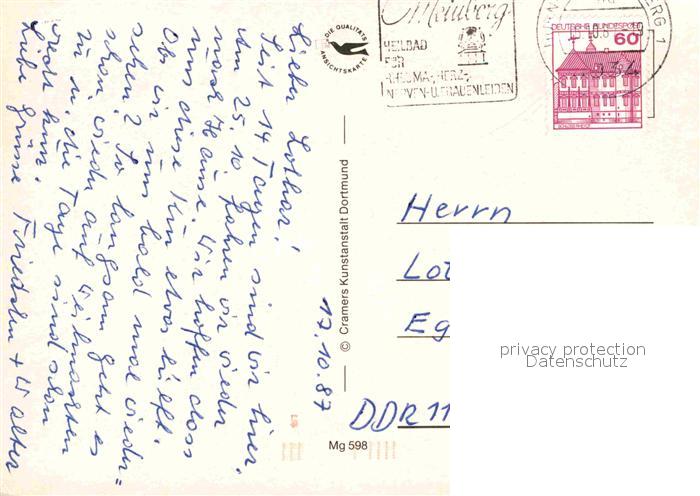 Lieber Lothar!
Seit 14 Tagen sind wir hier.
Am 25.10 fahren wir wieder
nach Hause. Wir hoffen dass
uns diese Kur etwas hilft.
Ob wir uns bald mal wieder=
sehen? So langsam geht es
schon wieder auf Weihnachten
zu u. die Tage sind schon
recht kurz.
Liebe Grüsse Friedchen + Walter
17.10.87
© Cramers Kunstanstalt Dortmund
Mg 598
DIE QUALITÄTS
ANSICHTSKARTE
Meinberg
HEILBAD
FÜR
RHEUMA-, HERZ-,
NERVEN-U. FRAUENLEIDEN
BERG 1
DEUTSCHE BUNDESPOST
60
Herrn
Lot
Eg
DDR 11
privacy protection
Datenschutz